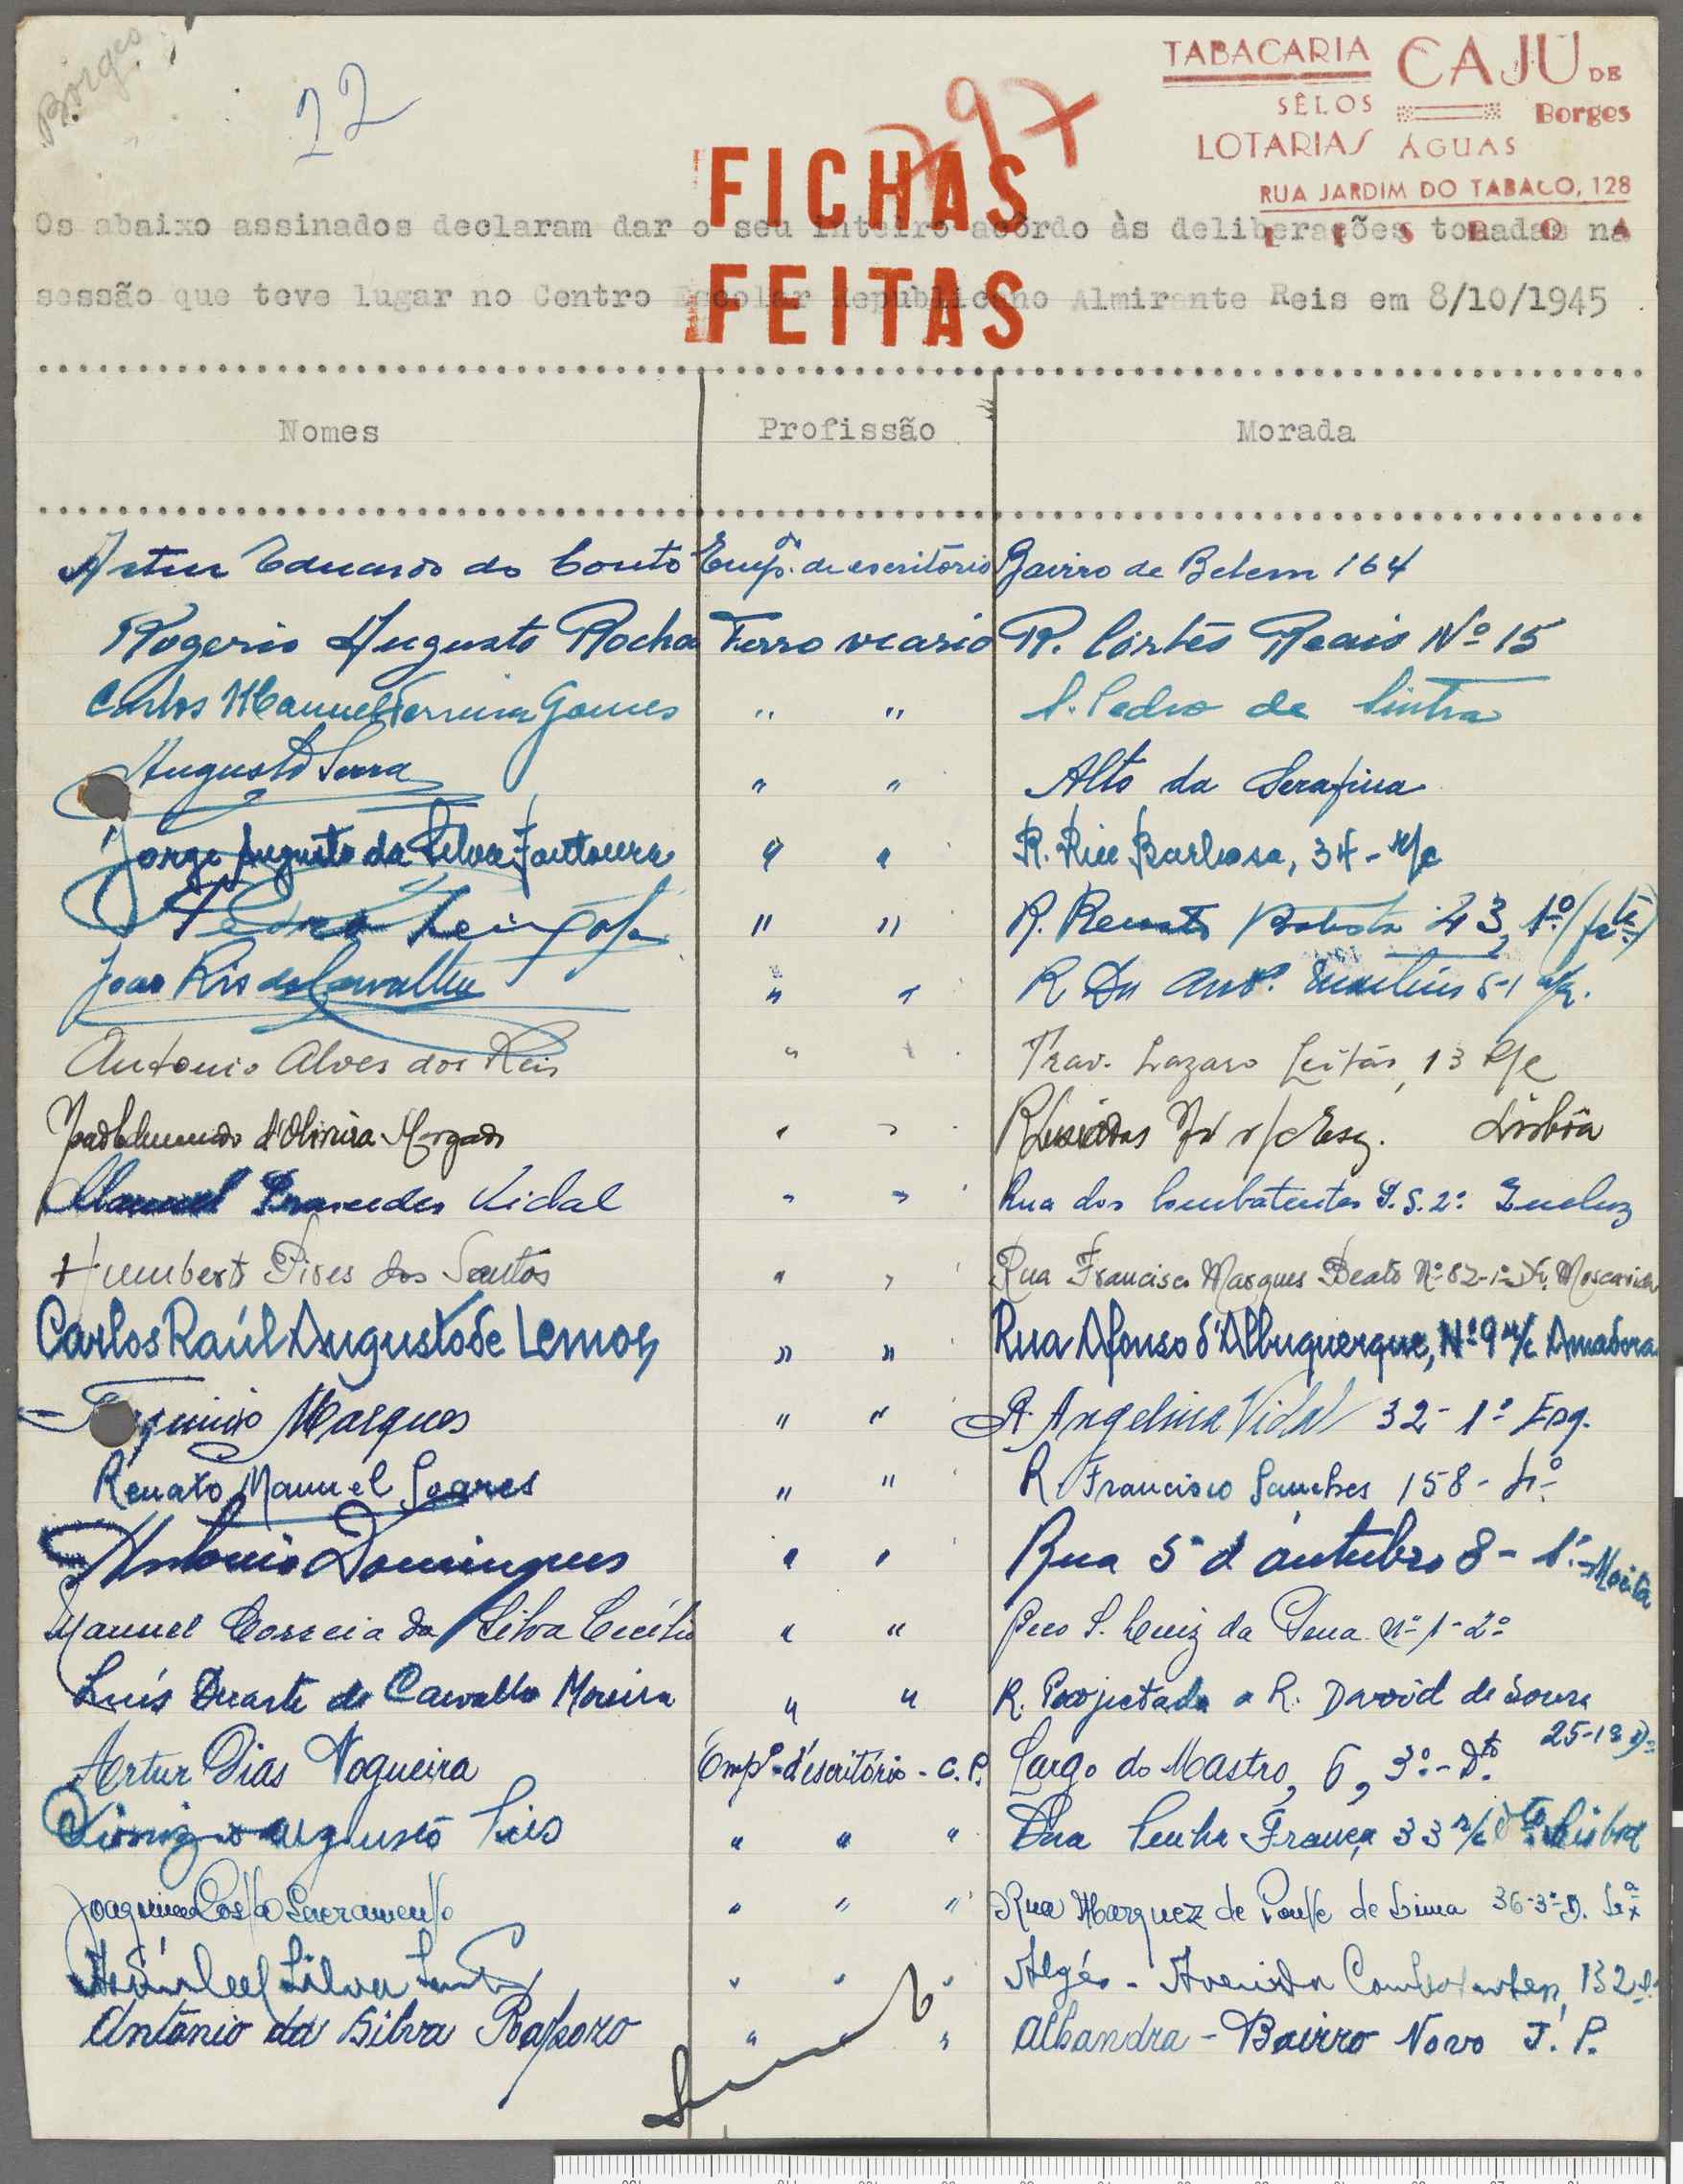 Borges
22
297
TABACARIA CAJU DE
SÊLOS Borges
LOTARIAS ÁGUAS
RUA JARDIM DO TABACO, 128
LISBOA
FICHAS
FEITAS
Os abaixo assinados declaram dar o seu inteiro acôrdo às deliberações tomadas na
sessão que teve lugar no Centro Escolar Republicano Almirante Reis em 8/10/1945
Nomes Profissão Morada
Artur Eduardo do Couto Empº. de escritório Bairro de Belem 164
Rogerio Augusto Rocha Ferro viario R. Côrtes Reais Nº 15
Carlos Manuel Ferreira Gomes " " S. Pedro de Sintra
Augusto Serra " " Alto da Serafina
Jorge Augusto da Silva Fontoura " " R. Rui Barbosa, 34 - r/c
Pedro " " R. Renato Batista 43, 1º (frte)
" " R. Antº.
Antonio Alves dos Reis " Trav. Lazaro Leitão, 13 R/c
d'Oliveira Morgado " " r/c Esq. Lisbôa
Manuel Vidal " " Rua dos Combatentes 2º Queluz
Humberto Pires dos Santos " " Rua Francisco Marques Beato Nº 82-1º Moscavide
Carlos Raúl Augusto de Lemos " " Rua Afonso d'Albuquerque, Nº 9 r/c Amadora
Marques " " R. Angelina Vidal 32 - 1º Esq.
Renato Manuel Soares " " R. Francisco Sanches 158 - 4º
Antonio Domingues " " Rua 5 d'outubro 8 - 1º - Moita
Manuel Correia da Silva Cecílio " " Beco S. Luiz da Pena nº 1 - 2º
Luís Duarte de Carvalho Moreira " " R. Projectada a R. David de Sousa
25-1º D.
Artur Dias Nogueira Empº d'escritório - C.P. Largo do Mastro, 6, 3º - Dto.
Augusto " " " Rua Penha França 33 r/c Dto Lisboa
Joaquim Costa Sacramento " " " Rua Marquez de Ponte de Lima 36-3º D. Lxª
Silva " " " Algés - Avenida Combatentes, 132
António da Silva Raposo " " " Alhandra - Bairro Novo J. P.